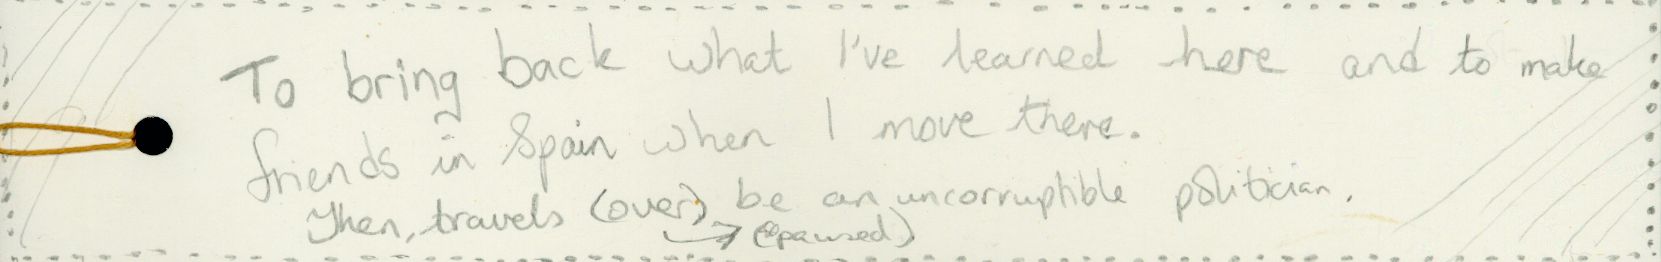 To bring back what I've learned here and to make
friends in Spain when I move there.
Then, travels (over) be an uncorruptible politician.
→ (paused)